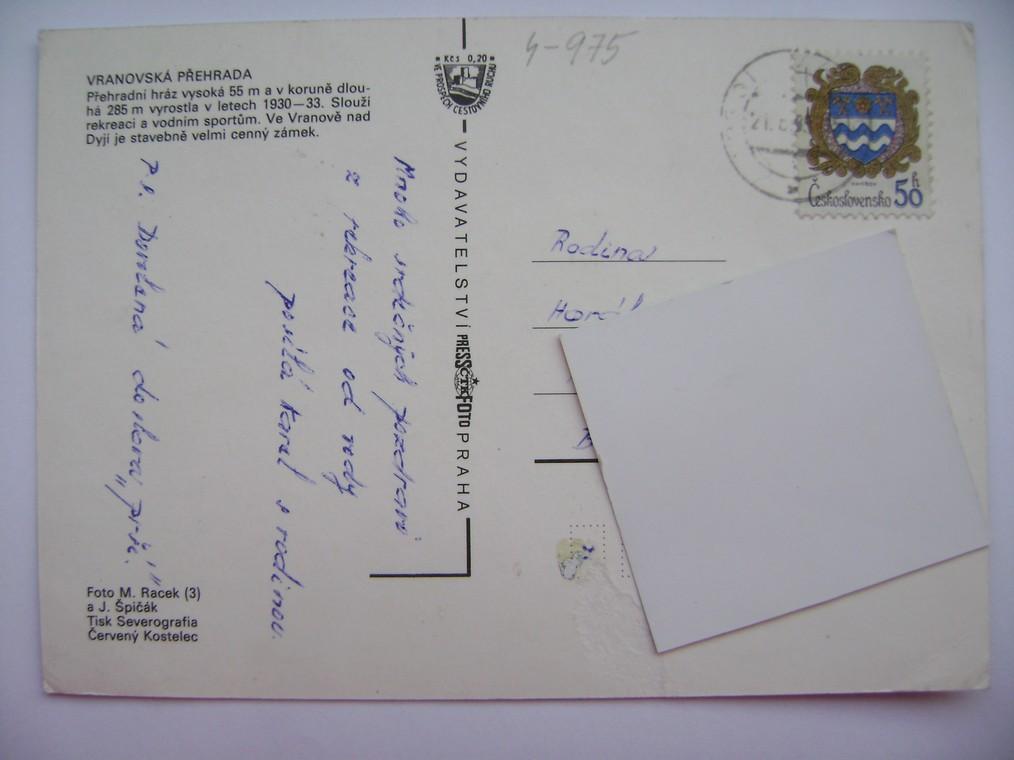 VRANOVSKÁ PŘEHRADA
Přehradní hráz vysoká 55 m a v koruně dlou-
há 285 m vyrostla v letech 1930—33. Slouží
rekreaci a vodním sportům. Ve Vranově nad
Dyjí je stavebně velmi cenný zámek.
Mnoho srdečných pozdravů
z rekreace od vody
posílá Karel s rodinou.
P.S. Dovolená doslova „prší."
Foto M. Racek (3)
a J. Špičák
Tisk Severografia
Červený Kostelec
Kčs 0,20
VE PROSPĚCH CESTOVNÍHO RUCHU
VYDAVATELSTVÍ PRESSFOTO PRAHA
ČTK
4-975
Československo 50 h
Rodina